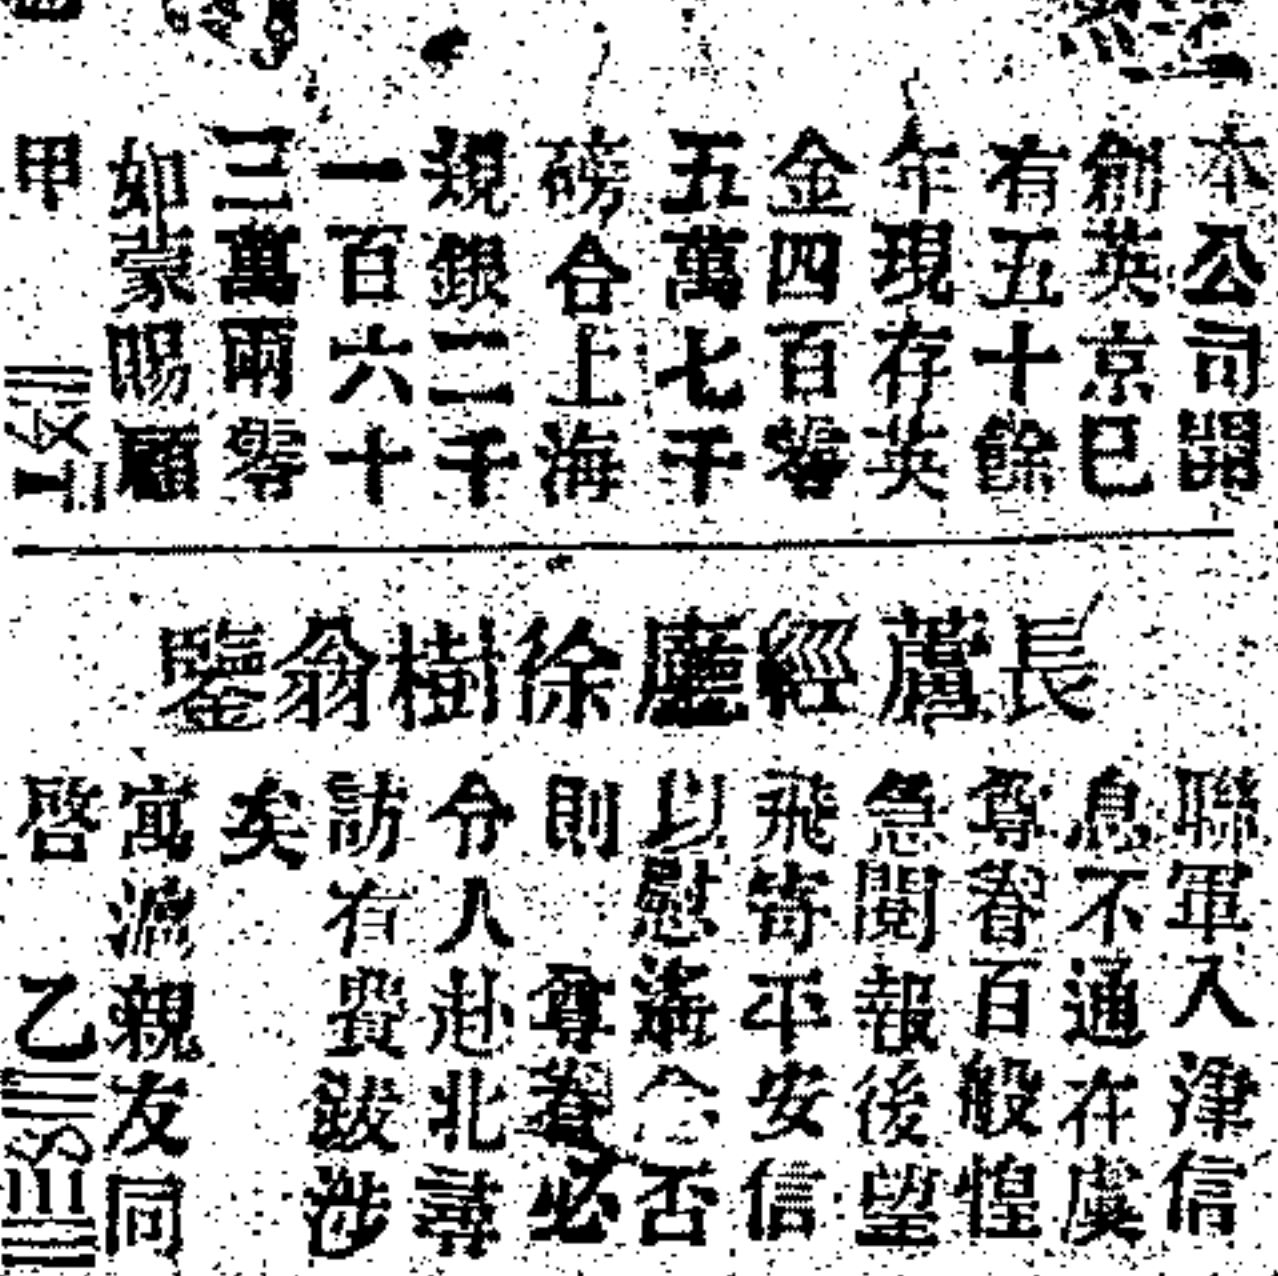 本公司開
創英京已
有五十餘
年現存英
金四百零
五萬七千
磅合上海
規銀二千
一百六十
三萬兩零
如蒙賜顧
甲
長蘆經廳徐樹翁鑒
聯軍入津信
息不通在虞
尊眷百般惶
急閱報後望
飛寄平安信
以慰遙念否
則 尊眷必
令人赴北尋
訪有費跋涉
矣
寓滬親友同
啓 乙